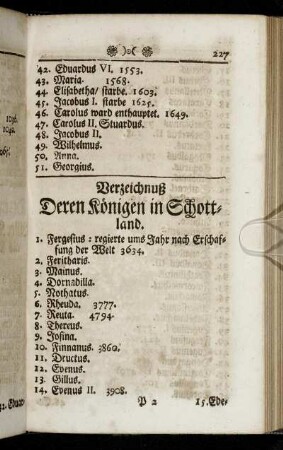 227
42. Eduardus VI. 1553.
43. Maria. 1568.
44. Elisabetha/ starbe. 1603.
45. Jacobus I. starbe 1625.
46. Carolus ward enthauptet. 1649.
47. Carolus II. Stuardus.
48. Jacobus II.
49. Wilhelmus.
50. Anna.
51. Georgius.
Verzeichnuß
Deren Königen in Schott-
land.
1. Fergesius: regierte ums Jahr nach Erschaf-
fung der Welt 3634.
2. Feritharis.
3. Mainus.
4. Dornadilla.
5. Nothatus.
6. Rheuda. 3777.
7. Reuta. 4794.
8. Thereus.
9. Josina.
10. Finnanus. 3860.
11. Dructus.
12. Evenus.
13. Gillus.
14. Evenus II. 3908.
P 2 15. Ede-